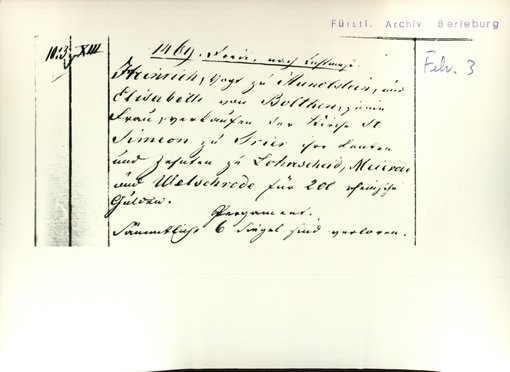 Fürstl. Archiv Berleburg
1469. Freit. nach Lichtmeß.
Febr. 3
Heinrich, Vogt zu Hunolstein, und
Elisabeth von Bolchen, seine
Frau, verkaufen der Kirche St
Simeon zu Trier ihre Renten
und Zehnten zu Lohrscheid,
und Welschrode für 200 rheinische
Gulden.
Pergament.
Sämmtliche 6 Siegel sind verloren.